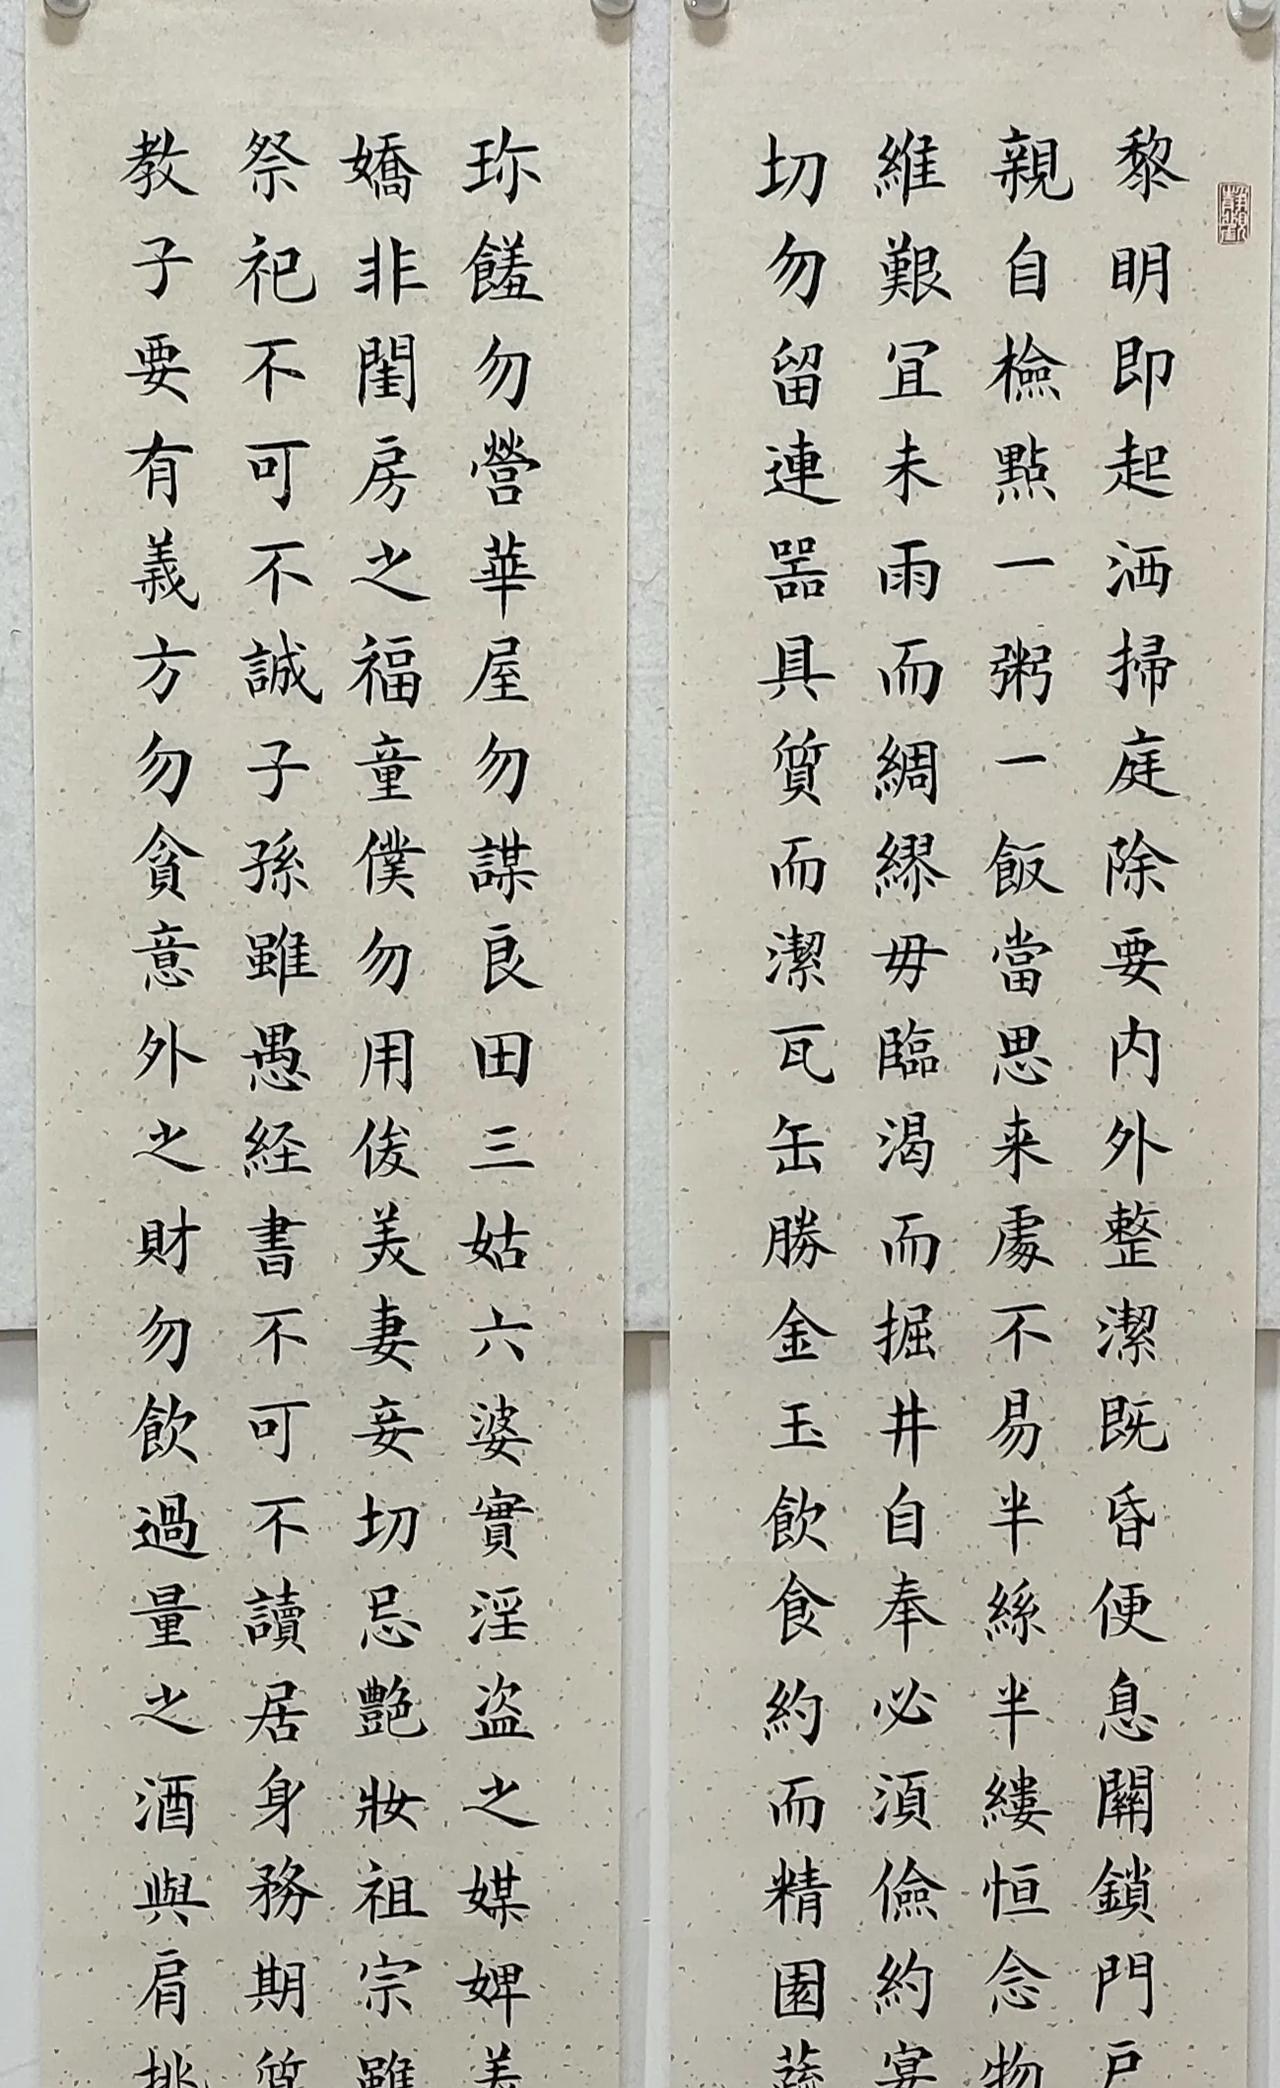 黎明即起洒掃庭除要内外整潔既昏便息關鎖門戶
親自檢點一粥一飯當思来處不易半絲半縷恒念物
維艱宜未雨而綢繆毋臨渴而掘井自奉必須儉約宴
切勿留連器具質而潔瓦缶勝金玉飲食約而精園蔬
珎饈勿營華屋勿謀良田三姑六婆實淫盗之媒婢美
嬌非閨房之福童僕勿用俊美妻妾切忌艷妝祖宗雖
祭祀不可不誠子孫雖愚経書不可不讀居身務期質
教子要有義方勿貪意外之財勿飲過量之酒與肩挑